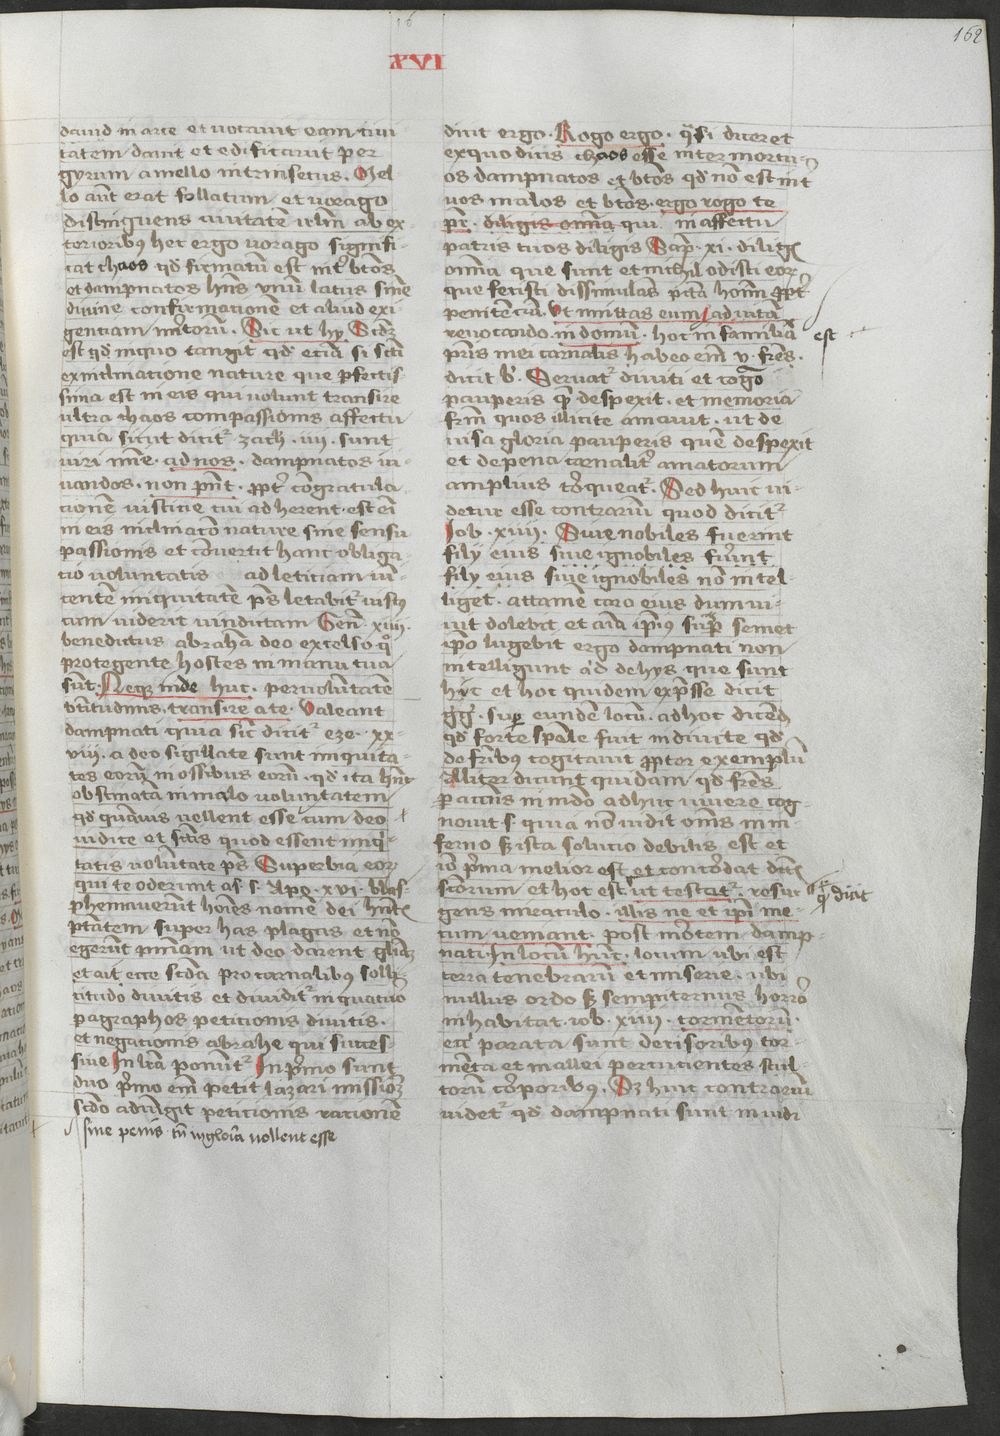 16
162
XVI
dauid in arce et uocauit eam ciui
tatem dauit et edificauit per
gyrum a mello intrinsecus. Mel
lo aūt erat follatum et uorago
distinguens ciuitatē irlm ab ex
terioribꝰ hec ergo uorago signifi
cat chaos qđ firmatū est int͛ btōs
et dampnatos hn̄s vnū latus sine
diuine confirmationē et aliud exi
gentiam m͛itorū. Sic ut hy Scdꝫ
est qđ in quo tangit qđ eciā si scti
ex inclinatione nature que p̄fectis
sima est in eis qui uolunt transire
ultra chaos compassionis affectu
quia sicut dicit᷑ zach. iiii. sunt
uiri mīe. ad nos. dampnatos iu
uandos. non pn̄t. ꝓpt͛ cōgratula
cionē iusticie cui adherent. est eī
in eis inclinatō nature sine sensu
passionis et cōuertit hanc obliga
tio uoluntatis ad leticiam iu
centē iniquitatē p̄s letabit᷑ iustꝰ
cum uiderit uindictam Gen̄. xiiii.
benedictus abrahā deo excelso. q͛
protegente hostes in manu tua
sūt. Neqꝫ inde huc. per uolūtatē
btitudinis. transire ate. Valeant
dampnati quia sic̄ dicit᷑ eze. xx
viii. a deo sigillate sunt iniquita
tes eorū in ossibus eorū. qđ ita hn̄t
obstinatā in malo uoluntatem
qđ quāuis vellent esse cum deo
iudice et sctis quod essent iniq͛
tatis volūtate p̄s Superbia eor
qui te oderunt as. s. Apo. xvi. blas
phemauerūt hoīes nomē dei hn̄tē
ptātem super has plagas et nō
egerūt pnīam ut deo darent gl͞iaꝫ
et ait ecce scda pro carnalibꝰ solli
citudo diuitis et diuidit᷑ in quatuor
pagraphos peticionis diuitis.
et negationis abrahe qui succes
siue In lrā ponunt᷑ In p͛mo sunt
duo p͛mo em̄ petit lazari missiōꝫ
scdo adiūgit peticionis rationē
sine penis tn̄ in gloīa uollent esse
dicit ergo. Rogo ergo. q̄si diceret
ex quo dicis chaos esse inter mortu
os dampnatos et btōs qđ nō est int͛
uos malos et btōs. ergo rogo te
pr̄. diligis omīa qui in affectu
patris tuos diligis Sap. xi. diligis
omīa que sunt et nichil odisti eor
que fecisti dissimulas pctā hoīm ꝓpt͛
penitēciā. Vt mittas eum ad uitā
reuocando. in domū. hoc in familiā est
pr̄is mei carnalis habeo em̄ v. fr̄es.
dicit b͛. Seruat᷑ diuiti et cogtō
pauperis q̄ despexit. et memoria
fr̄m quos illicite amauit. ut de
uisa gloria pauperis quē despexit
et de pena carnalit͛ amatorum
amplius tōrqueat᷑. Sed huic ui
detur esse contrariū quod dicit᷑
Iob. xiiii. Siue nobiles fuerint
filij eius siue ignobiles fuerint
filij eius siue ignobiles nō intel
liget. attamē caro eius dum ui
uit dolebit et aīa ipīus sup semet
ipō lugebit ergo dampnati non
intelligunt ad de hys que sunt
hic et hoc quidem expsse dicit
gg͛. sup eundē locū. ad hoc dicēdū
qđ forte spāle fuit in diuite qđ
do fr̄ibꝰ cogitauit ꝓpter exemplū
Aliter dicunt quidam qđ fr̄es
p accn̄s in mdō adhuc uiuere cog
nouit s. quia nō uidit om̄s in in
ferno sꝫ ista solucio debilis est et
iō p͛ma melior est et concordat dcīs
sctorum et hoc est. ut testat᷑. resur q͛ dicit
gens miraculo. illis ne et ipi me
cum ueniant. post mortem damp
nati. In locū hūc. locum ubi est
terra tenebrarū et miserie. ubi
nullus ordo sꝫ sempiternus horrō
inhabitat. iob. xiiii. tormētorū.
ecī parata sunt derisoribꝰ tor
mēta et mallei percucientes stul
torū corporibꝰ. Sꝫ huic contrariū
uidet᷑ qđ dampnati sunt inuidi